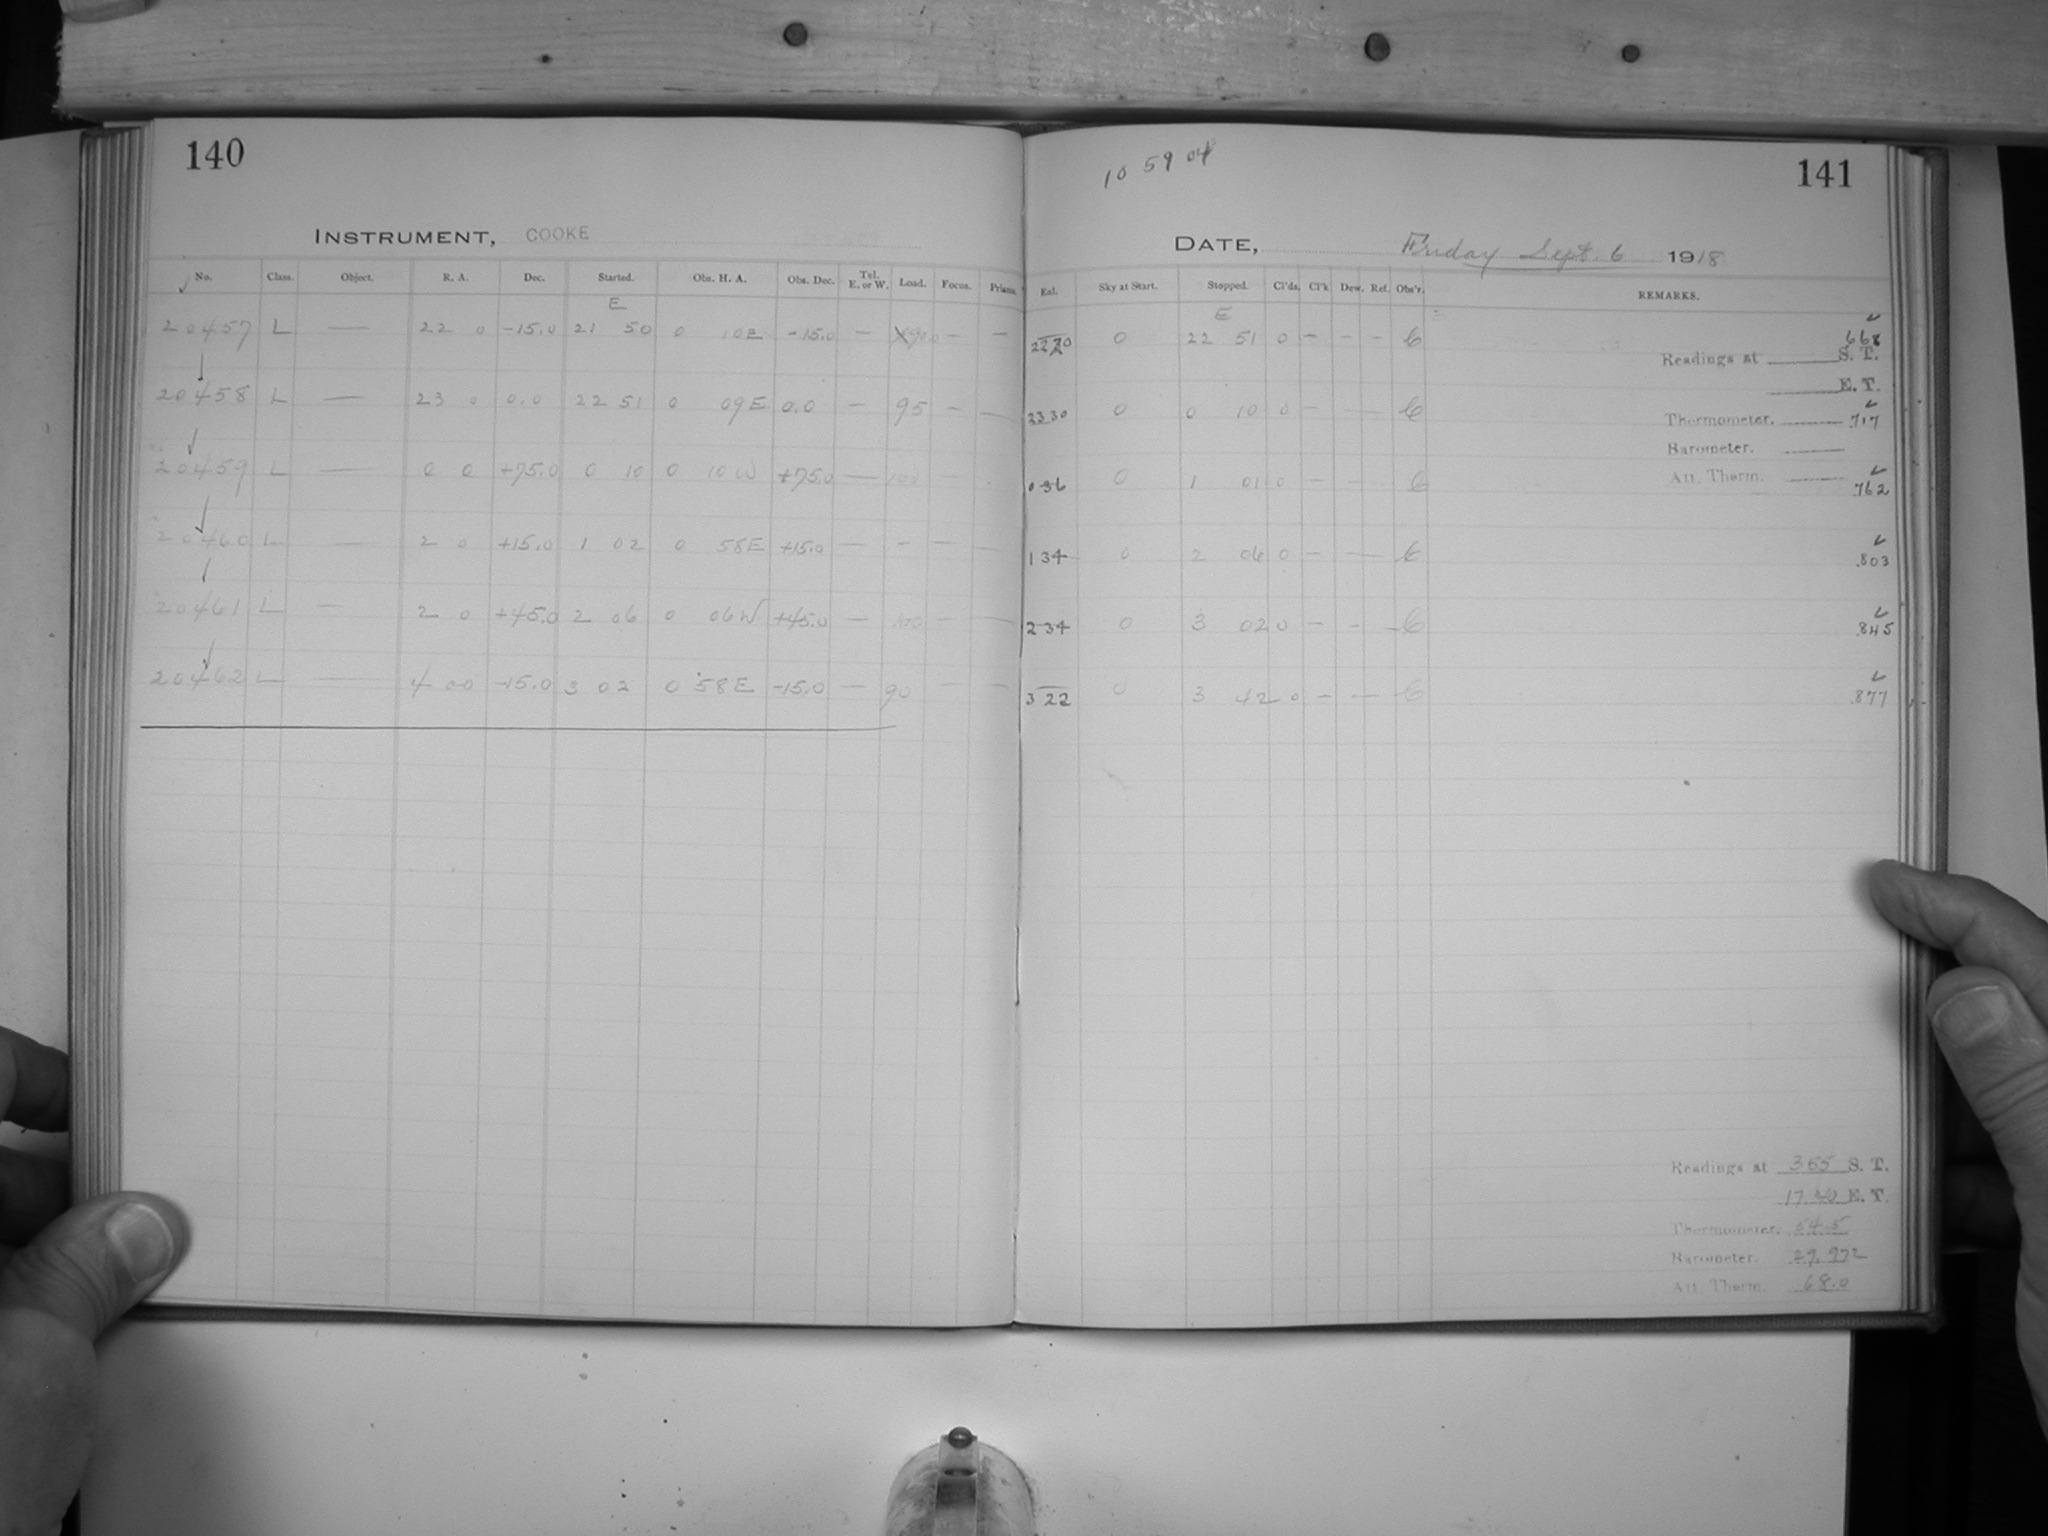 140
INSTRUMENT, COOKE
No. Class. Object. R. A. Dec. Started. Obs. H. A. Obs. Dec. Tel. E. or W. Load. Focus. Prisms.
E
20457 L — 22 0 -15.0 21 50 0 10E -15.0 — 90 — —
20458 L — 23 0 0.0 22 51 0 09E 0.0 — 95 — —
20459 L — 0 0 +75.0 0 10 0 10W +75.0 — 100 —
20460 L — 2 0 +15.0 1 02 0 58E +15.0 — - — —
20461 L — 2 0 +45.0 2 06 0 06W +45.0 — 100 — —
20462 L — 4 00 -15.0 3 02 0 58E -15.0 — 90 — —
10 59 04
141
DATE, Friday Sept. 6 1918
Esl. Sky at Start. Stopped. Cl'ds. Cl'k Dew. Ref. Obs'r. REMARKS.
E
0 22 51 0 - - - 6 668
Readings at S. T.
E. T.
2330 0 0 10 0 - — 6 Thermometer. .717
Barometer.
036 0 1 01 0 - — 6 Att. Therm. .762
134 0 2 06 0 - — 6 .803
234 0 3 02 0 - - - 6 .845
322 0 3 42 0 - — 6 .877
Readings at 355 S. T.
17.40 E. T.
Thermometer. 54.5
Barometer. 29.972
Att. Therm. 68.0